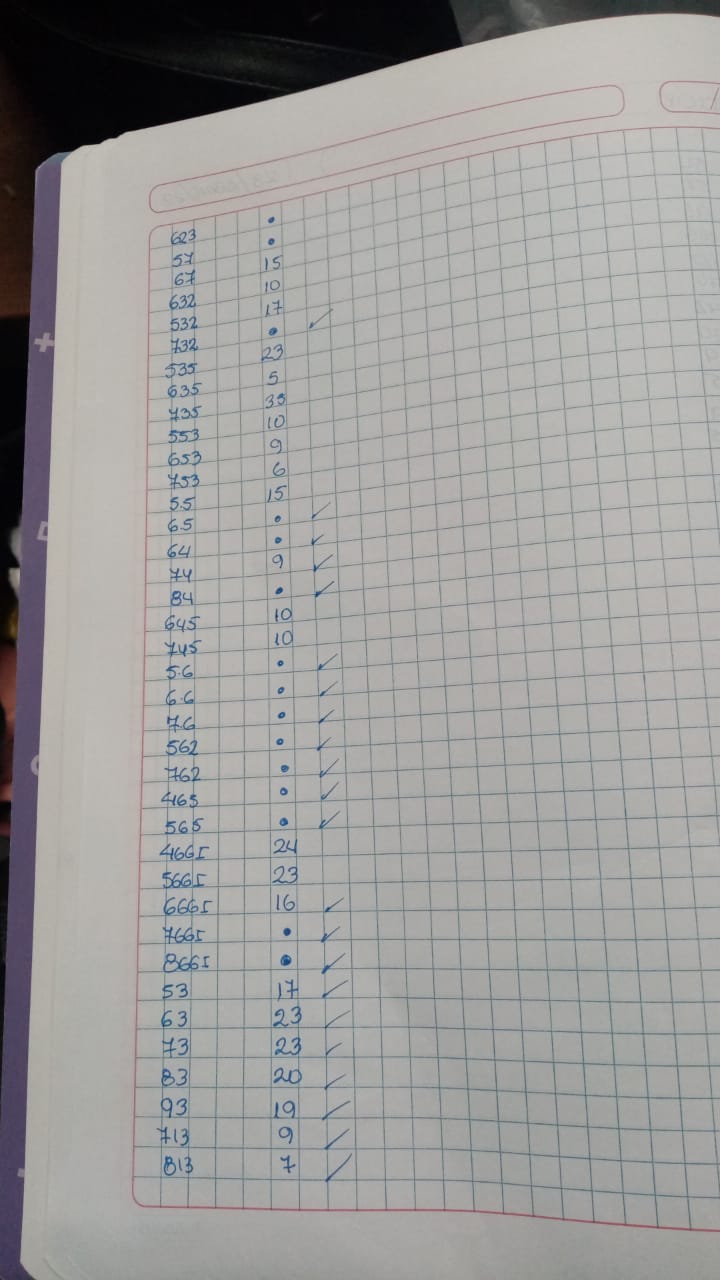 623 •
57 •
67 15
632 10
532 17
732 • ✓
535 23
635 5
735 33
553 10
653 9
753 6
5.5 15
6.5 • ✓
64 • ✓
74 9 ✓
84 • ✓
645 10
745 10
5.6 • ✓
6.6 • ✓
7.6 • ✓
562 • ✓
762 • ✓
465 • ✓
565 • ✓
4665 24
5665 23
6665 16 ✓
7665 • ✓
8665 • ✓
53 17 ✓
63 23 ✓
73 23 ✓
83 20 ✓
93 19 ✓
713 9 ✓
813 7 ✓